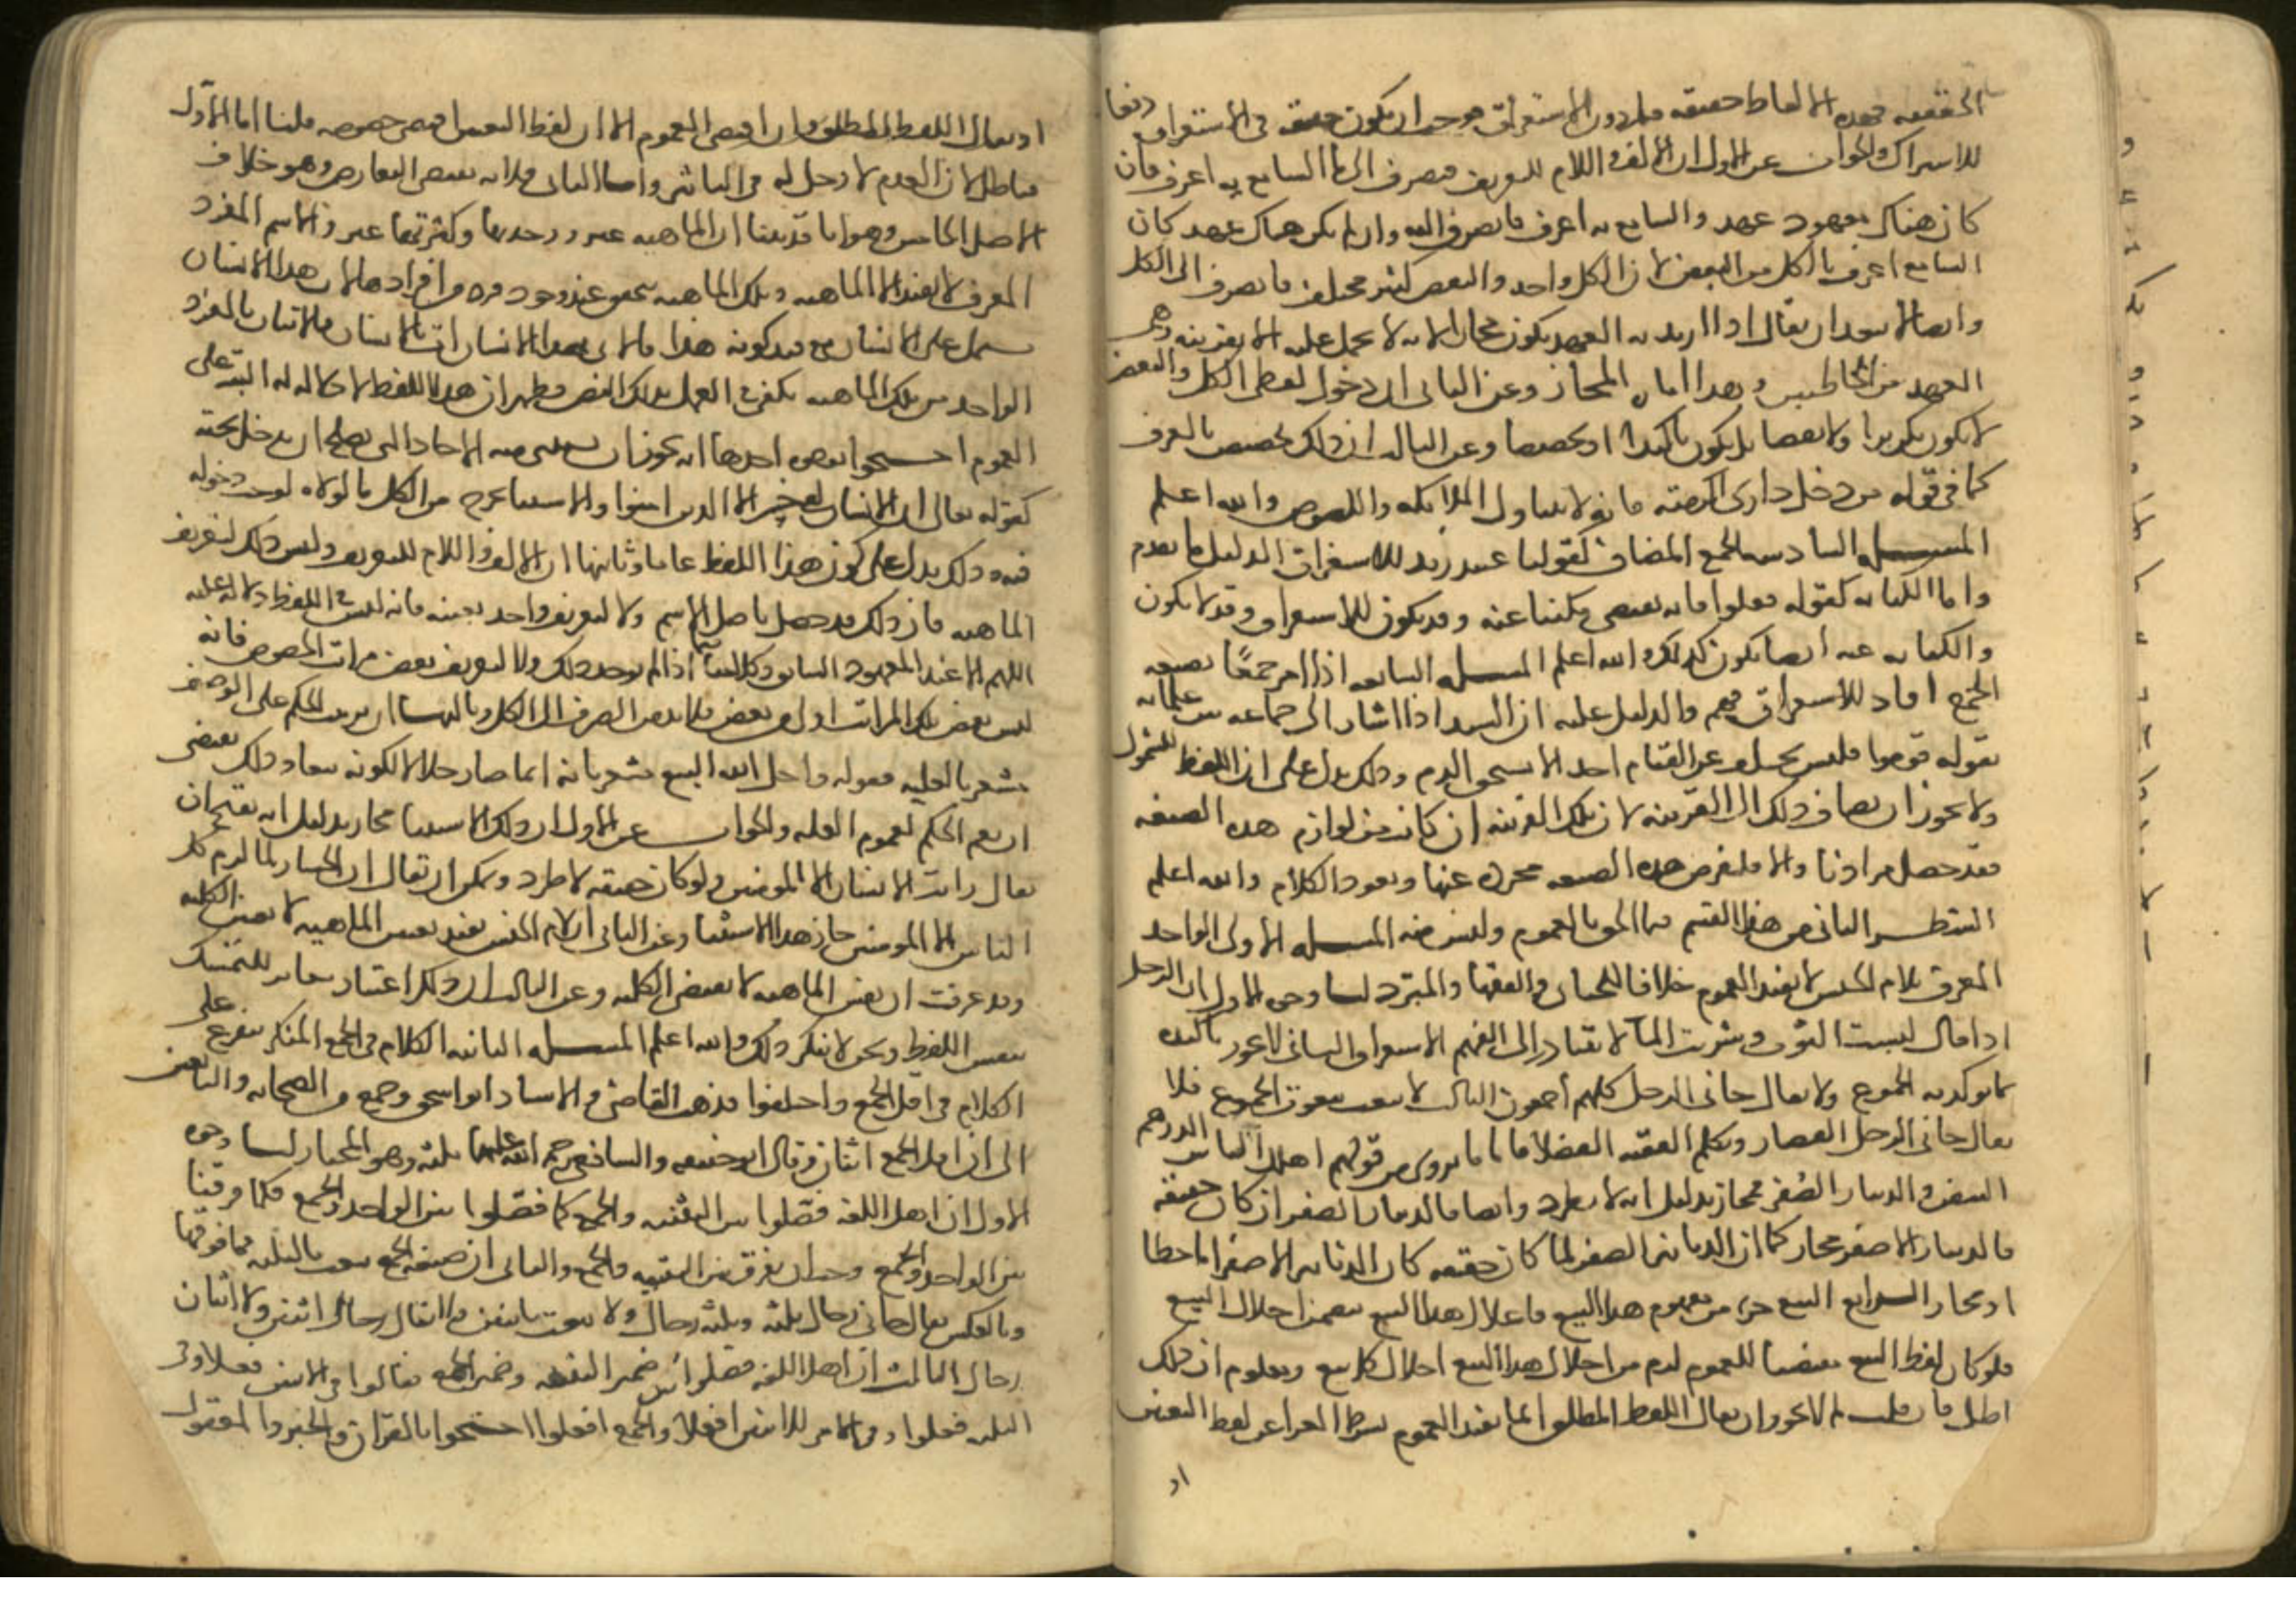 الحقيقه فهذه الالفاظ حقيقه فيما دون الاستغراق فوجب ان يكون حقيقه في الاستغراق دفعا
للاشتراك والجواب عن الاول ان الالف واللام للتعريف فيصرف الى ما السامع به اعرف فان
كان هناك معهود عهد والسامع به اعرف فانصرف اليه وان لم يكن هناك عهد كان
السامع اعرف بالكل من البعض لان الكل واحد والبعض كثير مختلف فانصرف الى الكل
وايضا لا يبعد ان يقال اذا اريد به العهد يكون مجازا لانه لا يحمل عليه الا بقرينه وهي
العهد بين المخاطبين وهذا اماره المجاز وعن الثاني ان دخول لفظي الكل والبعض
لا يكون تكريرا ولا نقضا بل يكون تاكيدا او تخصيصا وعن الثالث ان ذلك تخصيص بالعرف
كما في قوله من دخل داري اكرمته فانه لا يتناول الملايكه واللصوص والله اعلم
المسله السادسه الجمع المضاف كقولنا عبيد زيد للاستغراق الدليل ما تقدم
واما الكنايه كقوله فعلوا فانه يقتضي مكنيا عنه وقد يكون للاستغراق وقد لا يكون
والكنايه عنه ايضا يكون كذلك والله اعلم المسله السابعه اذا امر جمعا بصيغه
الجمع افاد الاستغراق فيهم والدليل عليه ان السيد اذا اشار الى جماعه من غلمانه
بقوله قوموا فليس يتخلف عن القيام احد الا استحق الذم وذلك يدل على ان اللفظ للشمول
ولا يجوز ان يضاف ذلك الى القرينه لان تلك القرينه ان كانت من لوازم هذه الصيغه
فقد حصل مرادنا والا فلنفرض هذه الصيغه مجرده عنها ويعود الكلام والله اعلم
الشطر الثاني من هذا القسم فيما الحق بالعموم وليس منه المسله الاولى الواحد
المعرف بلام الجنس لا يفيد العموم خلافا للجبائي والفقها والمبرد لنا وجوه الاول ان الرجل
اذا قال لبست الثوب وشربت الما لا يتبادر الى الفهم الاستغراق الثاني لا يجوز تاكيده
بما يوكد به الجموع ولا يقال جاني الرجل كلهم اجمعون الثالث لا ينعت بنعوت الجموع فلا
يقال جاني الرجل القصار وتكلم الفقيه الفضلا فاما ما يروى من قولهم اهلك الناس الدرهم
البيض والدينار الصفر فمجاز بدليل انه لا يطرد وايضا فالدينار الصفر ان كان حقيقه
فالدينار الاصفر مجاز كما ان الدنانير الصفر لما كان حقيقه كان الدنانير الاصفر اما خطا
او مجازا الرابع البيع جزء من مفهوم هذا البيع فاحلال هذا البيع يتضمن احلال البيع
فلو كان لفظ البيع مقتضيا للعموم لزم من احلال هذا البيع احلال كل بيع ومعلوم ان ذلك
باطل فان قلت لم لا يجوز ان يقال اللفظ المطلق انما يفيد العموم بشرط العراء عن لفظ التعيين
او
او يقال اللفظ المطلق وان اقتضى العموم الا ان لفظ التعيين اقتضى خصوصه قلنا اما الاول
فباطل لان العدم لا دخل له في التاثير واما الثاني فلانه يقتضي التعارض وهو خلاف
الاصل الخامس وهو انا قد بينا ان الماهيه غير ووحدتها وكثرتها غير والاسم المفرد
المعرف لا يفيد الا الماهيه وتلك الماهيه تتحقق عند وجود فرد من افرادها لان هذا الانسان
يشتمل على الانسان مع قيد كونه هذا فالاتي بهذا الانسان ات بالانسان فالاتيان بالفرد
الواحد من تلك الماهيه يكفي في العمل بذلك النص فظهر ان هذا اللفظ لا دلاله له البته على
العموم احتجوا بوجوه احدها انه يجوز ان يستثنى منه الاحاد التي يصلح ان يدخل تحته
كقوله تعالى ان الانسان لفي خسر الا الذين امنوا والاستثنا يخرج من الكل ما لولاه لوجب دخوله
فيه وذلك يدل على كون هذا اللفظ عاما وثانيها ان الالف واللام للتعريف وليس ذلك لتعريف
الماهيه فان ذلك قد حصل باصل الاسم ولا لتعريف واحد بعينه فانه ليس في اللفظ دلاله عليه
اللهم الا عند المعهود السابق وكلامنا فيما اذا لم يوجد ذلك ولا لتعريف بعض مراتب الخصوص فانه
ليس بعض تلك المراتب اولى من بعض فلابد من الصرف الى الكل وثالثها ان ترتيب الحكم على الوصف
مشعر بالعليه فقوله واحل الله البيع مشعر بانه انما صار حلالا لكونه بيعا وذلك يقتضي
ان يعم الحكم لعموم العله والجواب عن الاول ان ذلك الاستثنا مجاز بدليل انه يقبح ان
يقال رايت الانسان الا المومنين ولو كان حقيقه لاطرد ويمكن ان يقال ان الخسار لما لزم كل
الناس الا المومنين جاز هذا الاستثنا وعن الثاني ان لام الجنس يفيد تعيين الماهيه لا تعيين الكليه
وقد عرفت ان نفس الماهيه لا تقتضي الكليه وعن الثالث ان ذلك اعتبار مغاير للتمسك
بنفس اللفظ ونحن لا ننكر ذلك والله اعلم المسله الثانيه الكلام في الجمع المنكر يتفرع على
الكلام في اقل الجمع واختلفوا فذهب القاضي والاستاد ابو اسحق وجمع من الصحابه والتابعين
الى ان اقل الجمع اثنان وقال ابو حنيفه والشافعي رحمه الله عليهما ثلثه وهو المختار لنا وجوه
الاول ان اهل اللغه فصلوا بين التثنيه والجمع كما فصلوا بين الواحد والجمع فكما فرقنا
بين الواحد والجمع وجب ان يفرق بين التثنيه والجمع والثاني ان صيغه الجمع ينعت بالثلثه فما فوقها
وبالعكس يقال جاني رجال ثلثه وثلثه رجال ولا ينعت باثنين فلا يقال رجال اثنين ولا اثنان
رجال الثالث ان اهل اللغه فصلوا بين ضمير التثنيه وضمير الجمع فقالوا في الاثنين فعلا وفي
الثلثه فعلوا وفي الامر للاثنين افعلا والجمع افعلوا احتجوا بالقران والخبر والمعقول